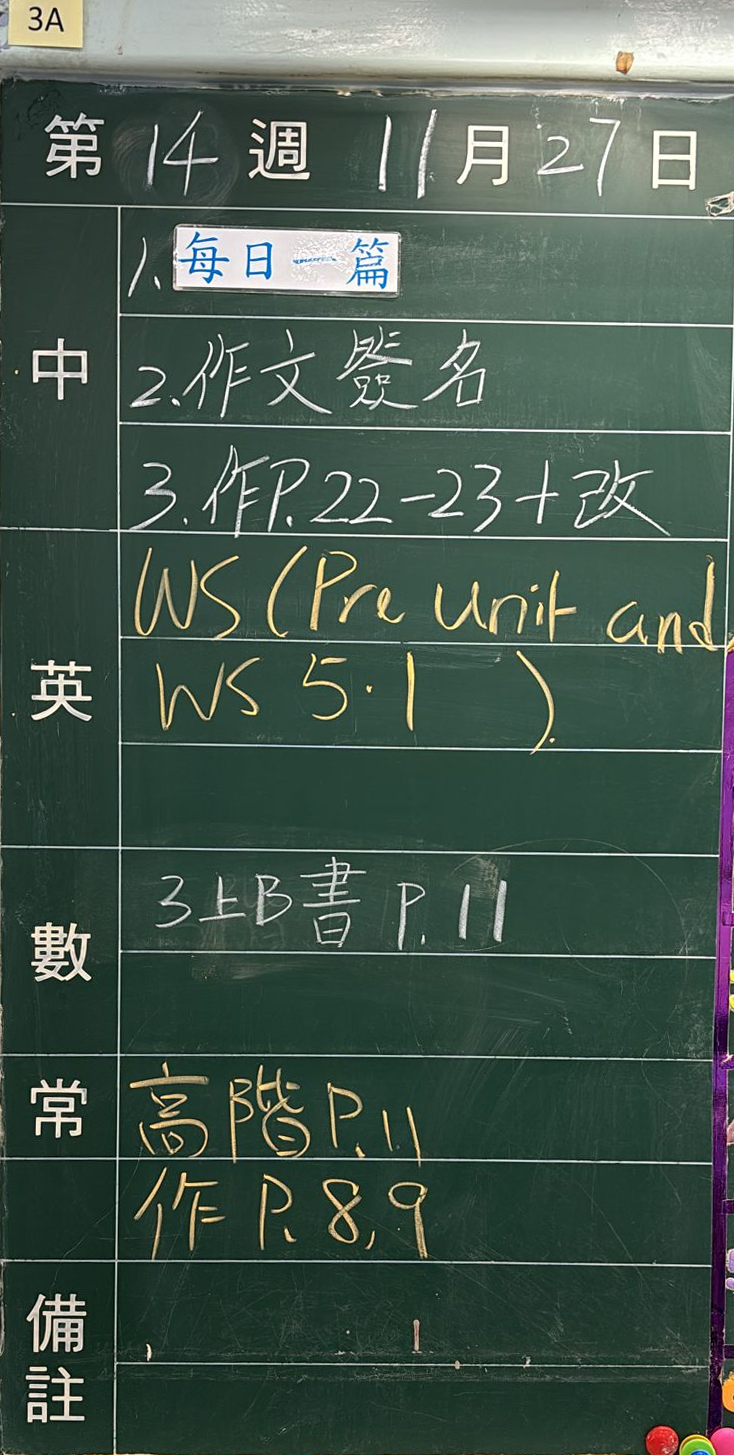 3A
第 14 週 11 月 27 日
中
1. 每日一篇
2. 作文簽名
3. 作P.22-23+改
英
WS (Pre unit and
WS 5.1 ).
數
3上B書 P.11
常
高階P.11
作 P.8,9
備註